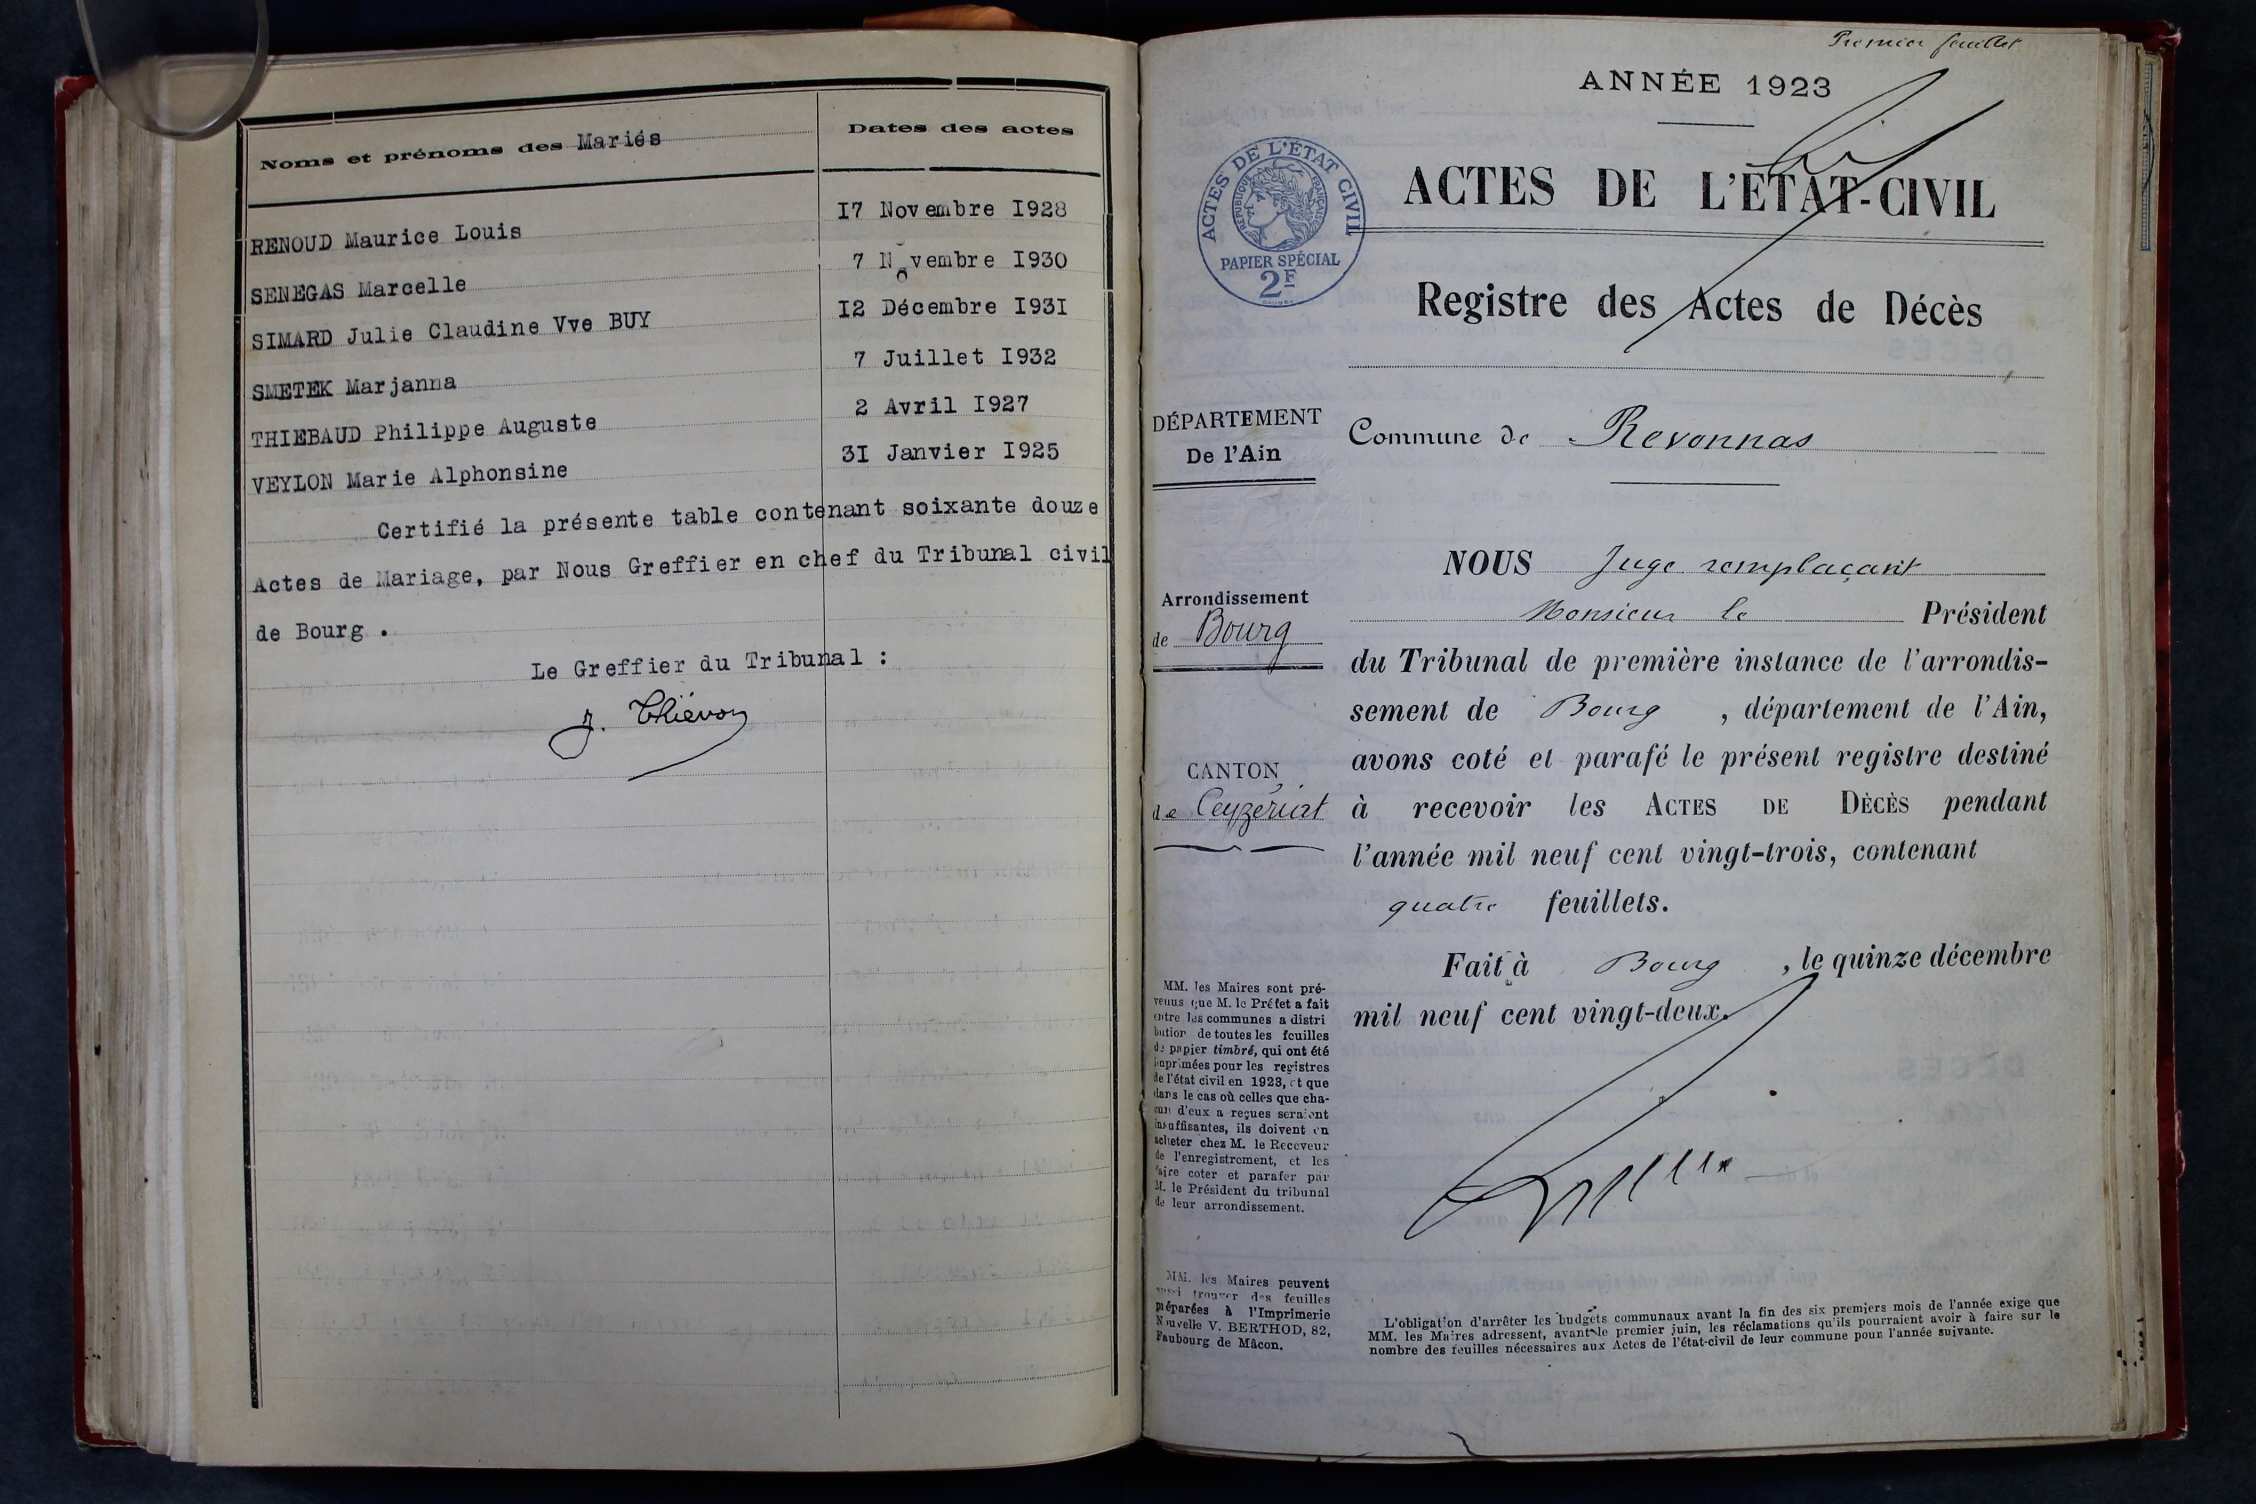 Noms et prénoms des Mariés
Dates des actes
RENOUD Maurice Louis
17 Novembre 1928
SENEGAS Marcelle
7 Novembre 1930
SIMARD Julie Claudine Vve BUY
12 Décembre 1931
SMETEK Marjanna
7 Juillet 1932
THIEBAUD Philippe Auguste
2 Avril 1927
VEYLON Marie Alphonsine
31 Janvier 1925
Certifié la présente table contenant soixante douze
Actes de Mariage, par Nous Greffier en chef du Tribunal civil
de Bourg .
Le Greffier du Tribunal :
J. Thiévon
Premier feuillet
ANNÉE 1923
ACTES DE L'ÉTAT CIVIL
RÉPUBLIQUE FRANÇAISE
PAPIER SPÉCIAL
2F
ACTES DE L'ÉTAT-CIVIL
Registre des Actes de Décès
DÉPARTEMENT
De l'Ain
Commune de Revonnas
Arrondissement
de Bourg
CANTON
de Ceyzériat
NOUS Juge remplaçant
Monsieur le Président
du Tribunal de première instance de l'arrondis-
sement de Bourg , département de l'Ain,
avons coté et parafé le présent registre destiné
à recevoir les ACTES DE DÉCÈS pendant
l'année mil neuf cent vingt-trois, contenant
quatre feuillets.
Fait à Bourg , le quinze décembre
mil neuf cent vingt-deux.
MM. les Maires sont pré-
venus que M. le Préfet a fait
entre les communes a distri
bution de toutes les feuilles
de papier timbré, qui ont été
imprimées pour les registres
de l'état civil en 1923, et que
dans le cas où celles que cha-
cun d'eux a reçues seraient
insuffisantes, ils doivent en
acheter chez M. le Receveur
de l'enregistrement, et les
faire coter et parafer par
M. le Président du tribunal
de leur arrondissement.
MM. les Maires peuvent
aussi trouver des feuilles
préparées à l'Imprimerie
Nouvelle V. BERTHOD, 82,
Faubourg de Mâcon.
L'obligation d'arrêter les budgets communaux avant la fin des six premiers mois de l'année exige que
MM. les Maires adressent, avant le premier juin, les réclamations qu'ils pourraient avoir à faire sur le
nombre des feuilles nécessaires aux Actes de l'état-civil de leur commune pour l'année suivante.